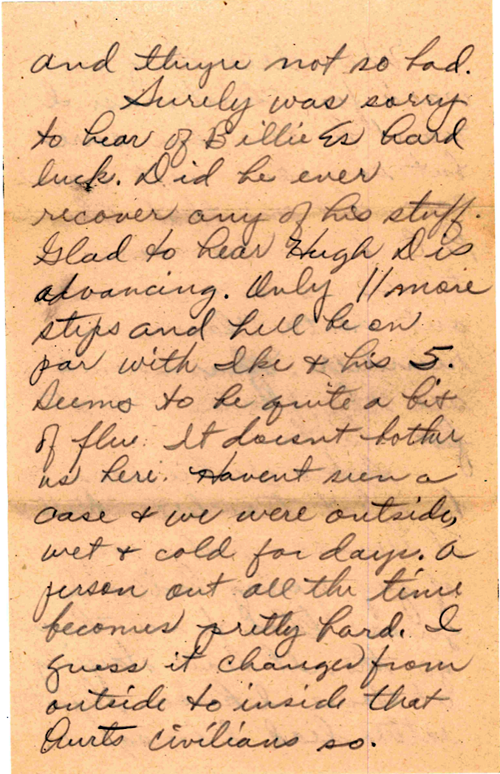 and theyre not so bad.
Surely was sorry
to hear of Billie Es hard
luck. Did he ever
recover any of his stuff.
Glad to hear Hugh D is
advancing. Only 11 more
steps and hell be on
par with Ike & his 5.
Seems to be quite a bit
of flue. It doesnt bother
us here. Havent seen a
case & we were outside,
wet & cold for days. A
person out all the time
becomes pretty hard. I
guess it changes from
outside to inside that
hurts civilians so.